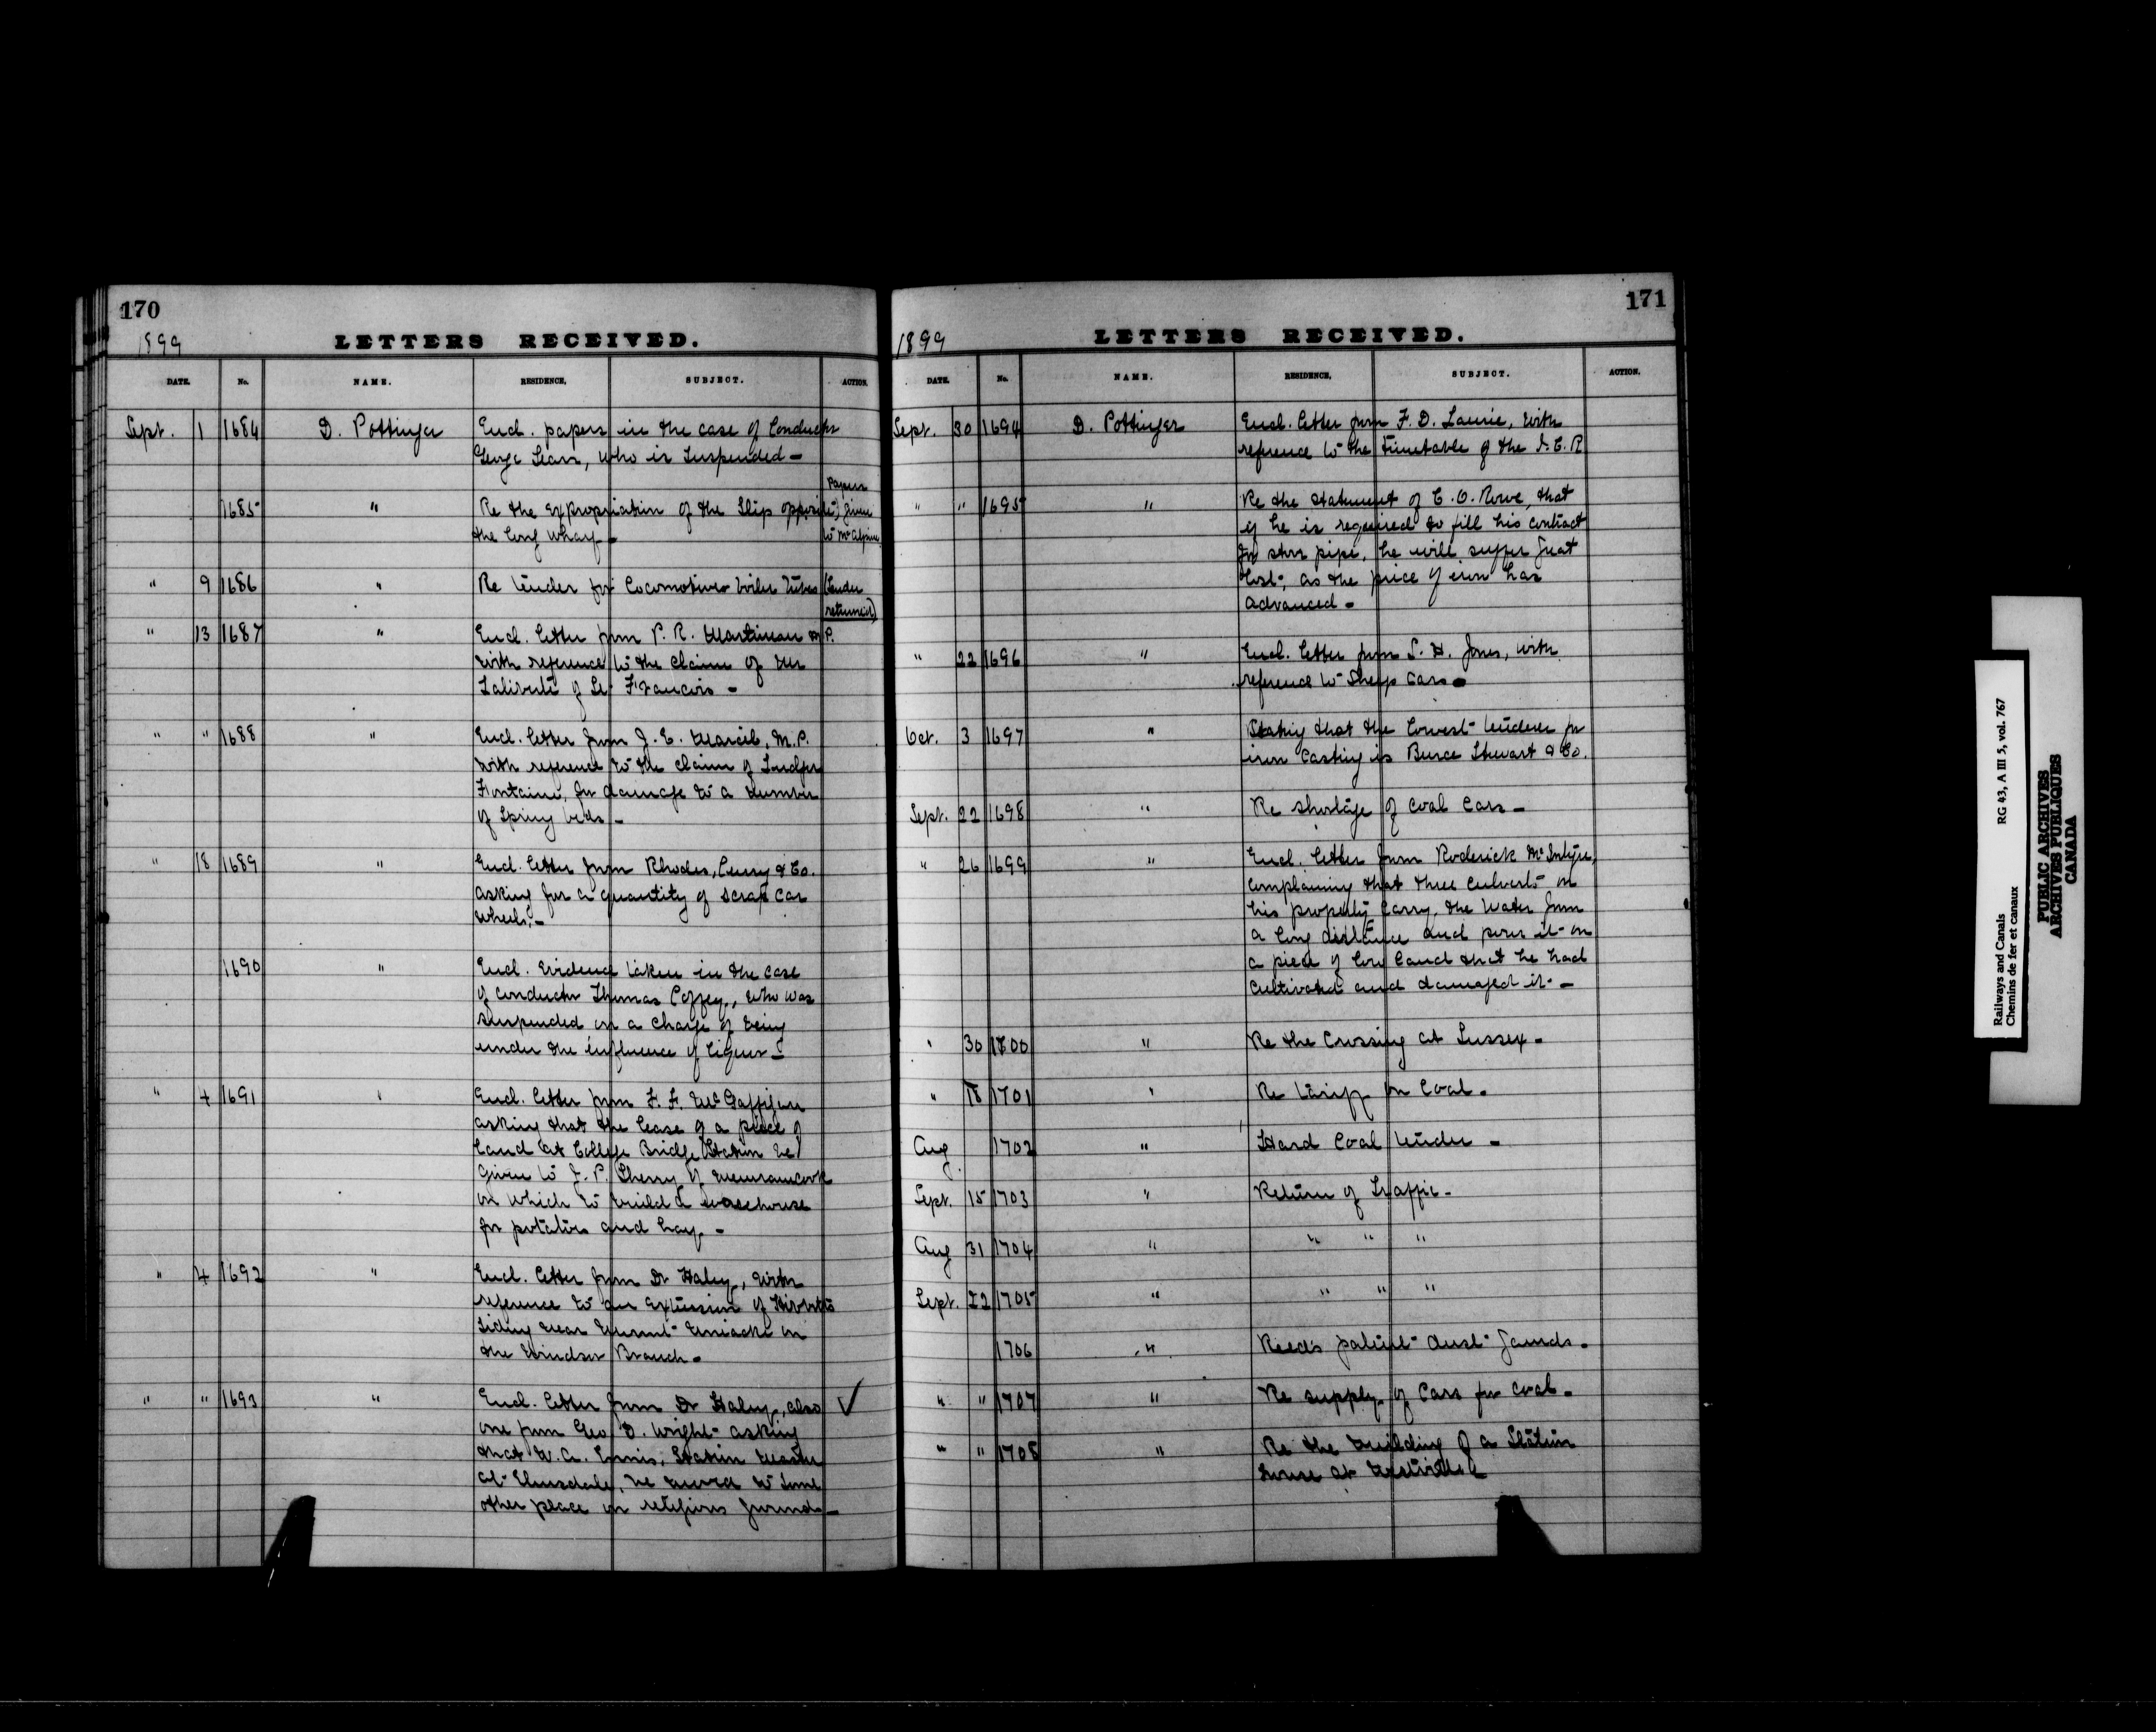 170
1899
LETTERS RECEIVED.
DATE. No. NAME. RESIDENCE. SUBJECT. ACTION.
Sept. 1 1684 D. Pottinger Encl. papers in the case of Conductor
George Sears, who is suspended -
1685 " Re the expropriation of the Slip opposite Papers given
the long wharf - to McAlpine
" 9 1686 " Re tender for Locomotive boiler tubes (tender
returned)
" 13 1687 " Encl. letter from P. R. Martineau M.P.
with reference to the claim of
Laliberté of St. Francois -
" " 1688 " Encl. letter from J. E. Marcil, M.P.
with reference to the claim of
Fontaine, for damage to a number
of Spring beds -
" 18 1689 " Encl. letter from Rhodes, Curry & Co.
asking for a quantity of scrap car
wheels. -
1690 " Encl. Evidence taken in the case
of conductor Thomas Coffey, who was
suspended on a charge of being
under the influence of liquor -
" 4 1691 " Encl. letter from F. F. McGaffigan
asking that the lease of a piece of
land at College Bridge Station be
given to J. P. Sherry of Memramcook
on which to build a warehouse
for potatoes and hay. -
" 4 1692 " Encl. letter from Dr Haley, with
reference to an extension of
siding near Mount Uniacke on
the Windsor Branch -
" " 1693 " Encl. letter from Dr Haley, also ✓
one from Geo D. Wright asking
that W. A. Ennis, Station Master
at Elmsdale, be moved to some
other place on religious grounds -
171
1899
LETTERS RECEIVED.
DATE. No. NAME. RESIDENCE. SUBJECT. ACTION.
Sept. 30 1694 D. Pottinger Encl. letter from F. D. Laurie, with
reference to the timetable of the I.C.R
" " 1695 " Re the statement of C. O. Rowe, that
if he is required to fill his contract
for stove pipe, he will suffer great
lost, as the price of iron has
advanced -
" 22 1696 " Encl. letter from S. H. Jones, with
reference to Sheep Cars -
Oct. 3 1697 " Stating that the lowest tenderer for
iron Casting is Bruce Stewart & Co.
Sept. 22 1698 " Re shortage of coal Cars -
" 26 1699 " Encl. letter from Roderick McIntyre,
complaining that three culverts on
his property carry the water from
a long distance and pour it on
a piece of low land that he had
cultivated and damaged it. -
" 30 1700 " Re the Crossing at Sussex -
" 18 1701 " Re tariff on Coal -
Aug 1702 " Hard Coal tender -
Sept. 15 1703 " Return of Traffic -
Aug 31 1704 " " " "
Sept. 22 1705 " " " "
1706 " Reed's patent dust guards -
" " 1707 " Re supply of Cars for coal -
" " 1708 " Re the building of a Station
house at Westville
Railways and Canals RG 43, A III 5, vol. 767
Chemins de fer et canaux
PUBLIC ARCHIVES
ARCHIVES PUBLIQUES
CANADA